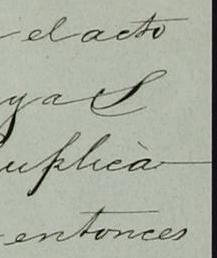 el acto
ya S
suplicà
entonces